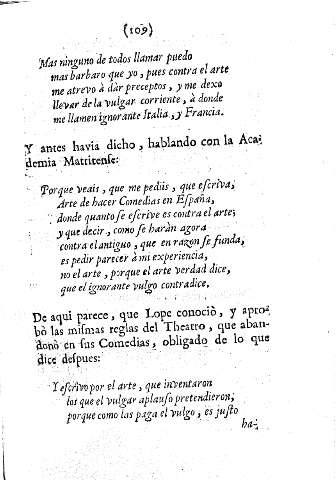 (109)
Mas ninguno de todos llamar puedo
mas barbaro que yo, pues contra el arte
me atrevo à dàr preceptos, y me dexo
llevar de la vulgar corriente, à donde
me llamen ignorante Italia, y Francia.
Y antes havia dicho, hablando con la Aca-
demia Matritense:
Porque veais, que me pedis, que escriva,
Arte de hacer Comedias en España,
donde quanto se escrive es contra el arte;
y que decir, como se haràn agora
contra el antiguo, que en razon se funda,
es pedir parecer à mi experiencia,
no el arte, porque el arte verdad dice,
que el ignorante vulgo contradice,
De aqui parece, que Lope conociò, y apro-
bò las mismas reglas del Theatro, que aban-
donò en sus Comedias, obligado de lo que
dice despues:
Y escrivo por el arte, que inventaron
los que el vulgar aplauso pretendieron;
porque como las paga el vulgo, es justo
ha-